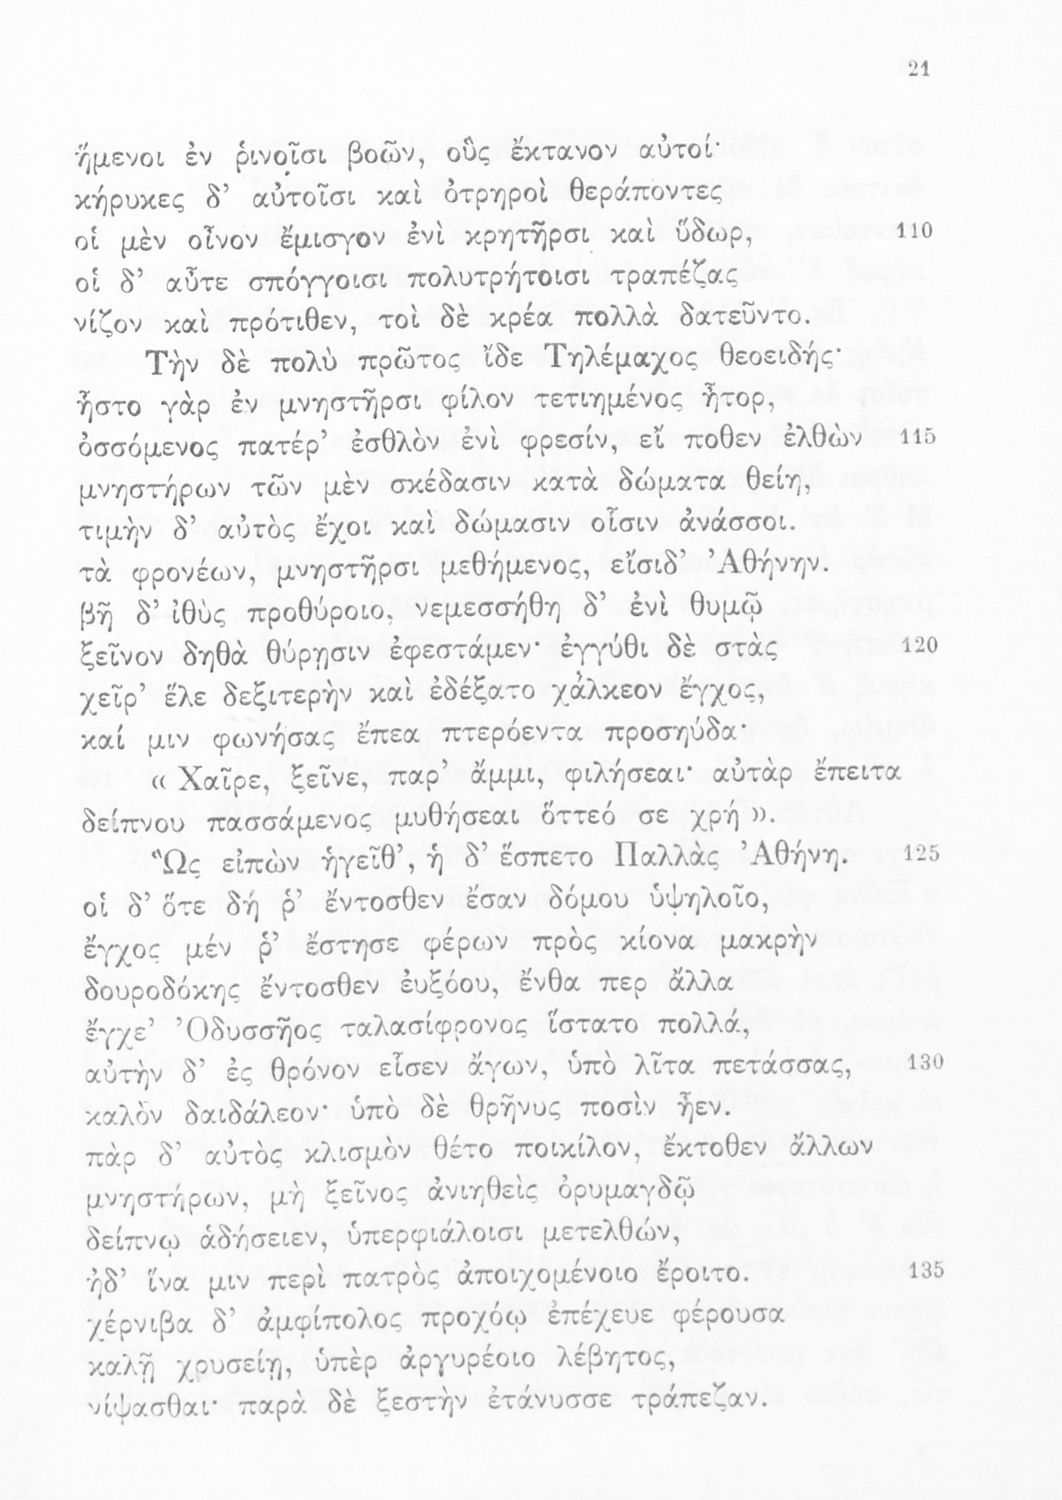 21
ἥμενοι ἐν ῥινοῖσι βοῶν, οὓς ἔκτανον αὐτοί·
κήρυκες δ’ αὐτοῖσι καὶ ὀτρηροὶ θεράποντες
οἱ μὲν οἶνον ἔμισγον ἐνὶ κρητῆρσι καὶ ὕδωρ, 110
οἱ δ’ αὖτε σπόγγοισι πολυτρήτοισι τραπέζας
νίζον καὶ πρότιθεν, τοὶ δὲ κρέα πολλὰ δατεῦντο.
Τὴν δὲ πολὺ πρῶτος ἴδε Τηλέμαχος θεοειδής·
ἧστο γὰρ ἐν μνηστῆρσι φίλον τετιημένος ἦτορ,
ὀσσόμενος πατέρ’ ἐσθλὸν ἐνὶ φρεσίν, εἴ ποθεν ἐλθὼν 115
μνηστήρων τῶν μὲν σκέδασιν κατὰ δώματα θείη,
τιμὴν δ’ αὐτὸς ἔχοι καὶ δώμασιν οἷσιν ἀνάσσοι.
τὰ φρονέων, μνηστῆρσι μεθήμενος, εἴσιδ’ Ἀθήνην.
βῆ δ’ ἰθὺς προθύροιο, νεμεσσήθη δ’ ἐνὶ θυμῷ
ξεῖνον δηθὰ θύρῃσιν ἐφεστάμεν· ἐγγύθι δὲ στὰς 120
χεῖρ’ ἕλε δεξιτερὴν καὶ ἐδέξατο χάλκεον ἔγχος,
καί μιν φωνήσας ἔπεα πτερόεντα προσηύδα·
« Χαῖρε, ξεῖνε, παρ’ ἄμμι, φιλήσεαι· αὐτὰρ ἔπειτα
δείπνου πασσάμενος μυθήσεαι ὅττεό σε χρή ».
Ὣς εἰπὼν ἡγεῖθ’, ἡ δ’ ἕσπετο Παλλὰς Ἀθήνη. 125
οἱ δ’ ὅτε δή ῥ’ ἔντοσθεν ἔσαν δόμου ὑψηλοῖο,
ἔγχος μέν ῥ’ ἔστησε φέρων πρὸς κίονα μακρὴν
δουροδόκης ἔντοσθεν ἐυξόου, ἔνθα περ ἄλλα
ἔγχε’ Ὀδυσσῆος ταλασίφρονος ἵστατο πολλά,
αὐτὴν δ’ ἐς θρόνον εἷσεν ἄγων, ὑπὸ λῖτα πετάσσας, 130
καλὸν δαιδάλεον· ὑπὸ δὲ θρῆνυς ποσὶν ἦεν.
πὰρ δ’ αὐτὸς κλισμὸν θέτο ποικίλον, ἔκτοθεν ἄλλων
μνηστήρων, μὴ ξεῖνος ἀνιηθεὶς ὀρυμαγδῷ
δείπνῳ ἁδήσειεν, ὑπερφιάλοισι μετελθών,
ἠδ’ ἵνα μιν περὶ πατρὸς ἀποιχομένοιο ἔροιτο. 135
χέρνιβα δ’ ἀμφίπολος προχόῳ ἐπέχευε φέρουσα
καλῇ χρυσείῃ, ὑπὲρ ἀργυρέοιο λέβητος,
νίψασθαι· παρὰ δὲ ξεστὴν ἐτάνυσσε τράπεζαν.